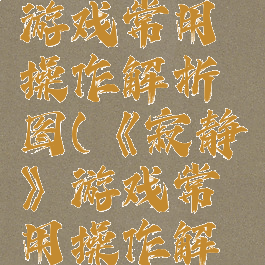 游戏常用
操作解析
图(《寂静
》游戏常
用操作解